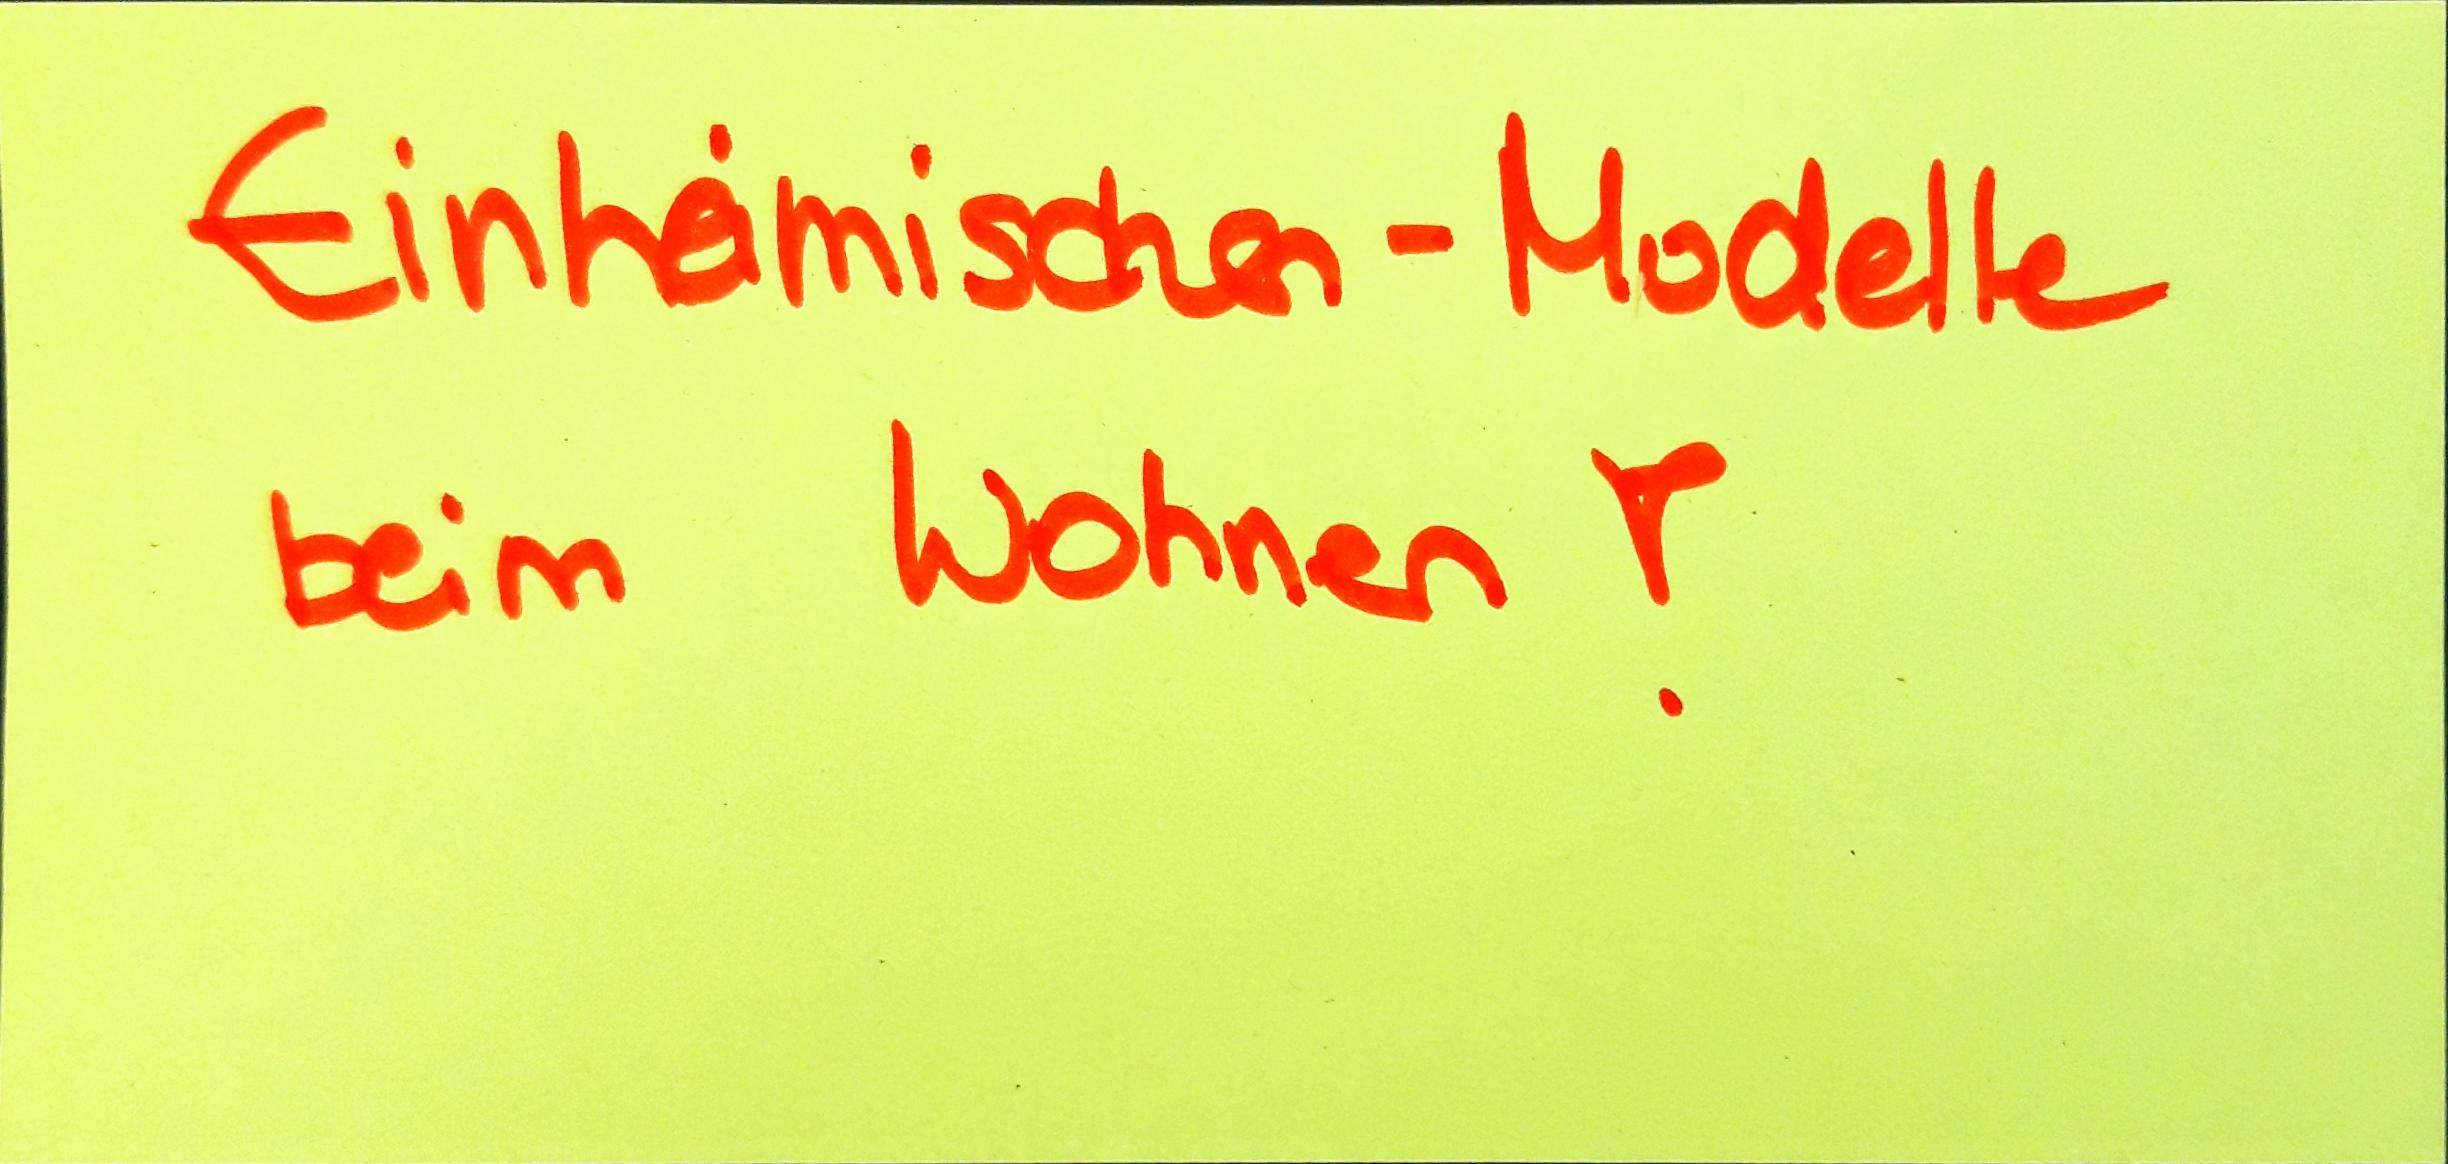 Einheimischen-Modelle
beim Wohnen !